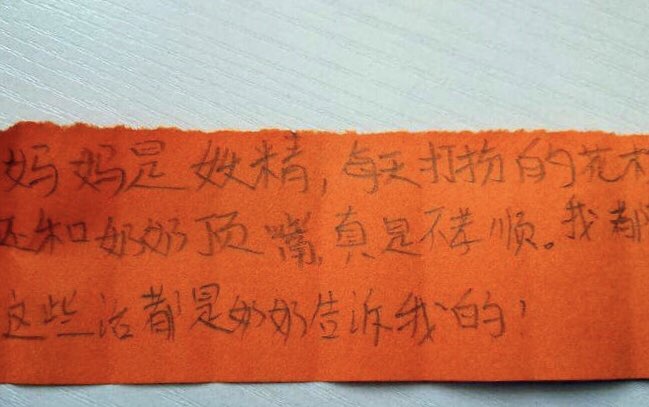 妈妈是妖精,每天打扮的花木
还和奶奶顶嘴,真是不孝顺。我都
这些话都是奶奶告诉我的!